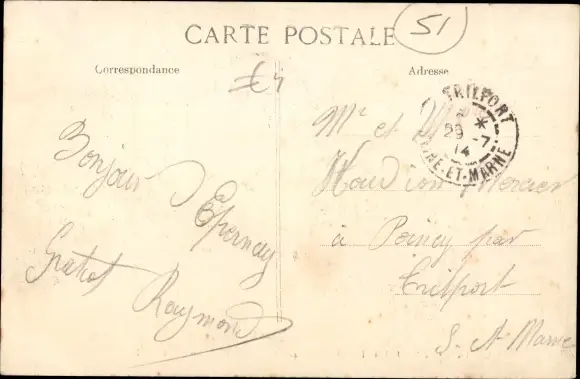 CARTE POSTALE
51
Correspondance
Adresse
£4
TRILPORT
29 -7
14
NE-ET-MARNE
Bonjour d'Epernay
Gratiot Raymond
Mr et M
Houdion Mercier
à Poincy par
Trilport
S. et Marne